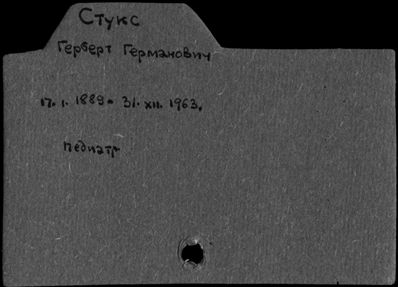 Стукс
Герберт Германович
17. I. 1889 - 31. XII. 1963.
педиатр